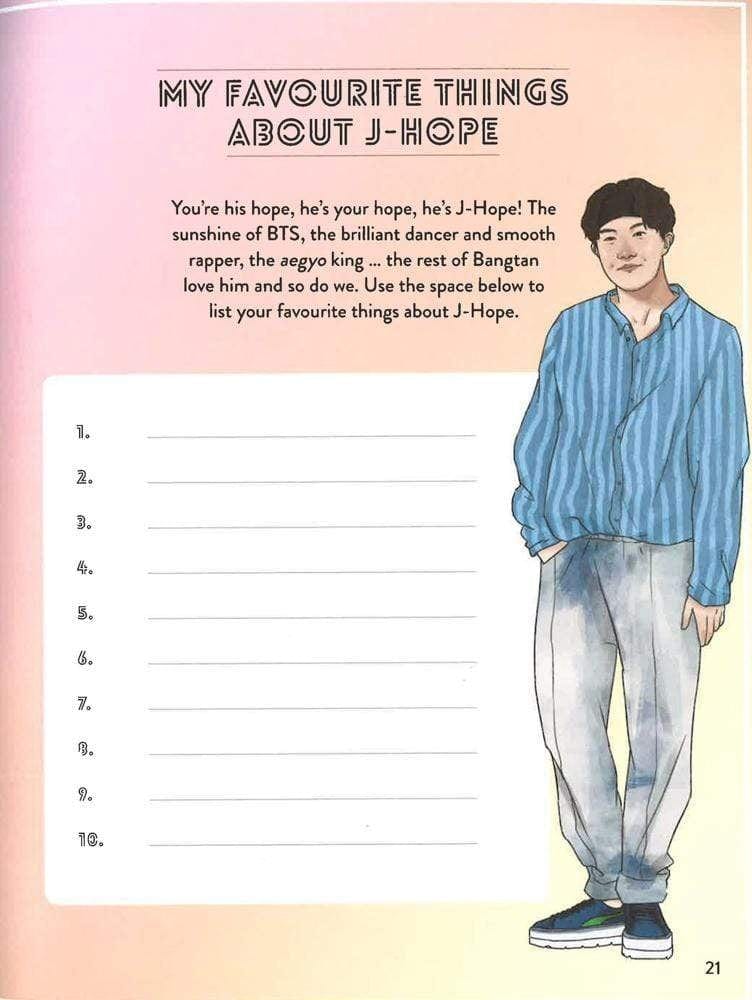 MY FAVOURITE THINGS
ABOUT J-HOPE
You're his hope, he's your hope, he's J-Hope! The
sunshine of BTS, the brilliant dancer and smooth
rapper, the aegyo king ... the rest of Bangtan
love him and so do we. Use the space below to
list your favourite things about J-Hope.
1.
2.
3.
4.
5.
6.
7.
8.
9.
10.
21